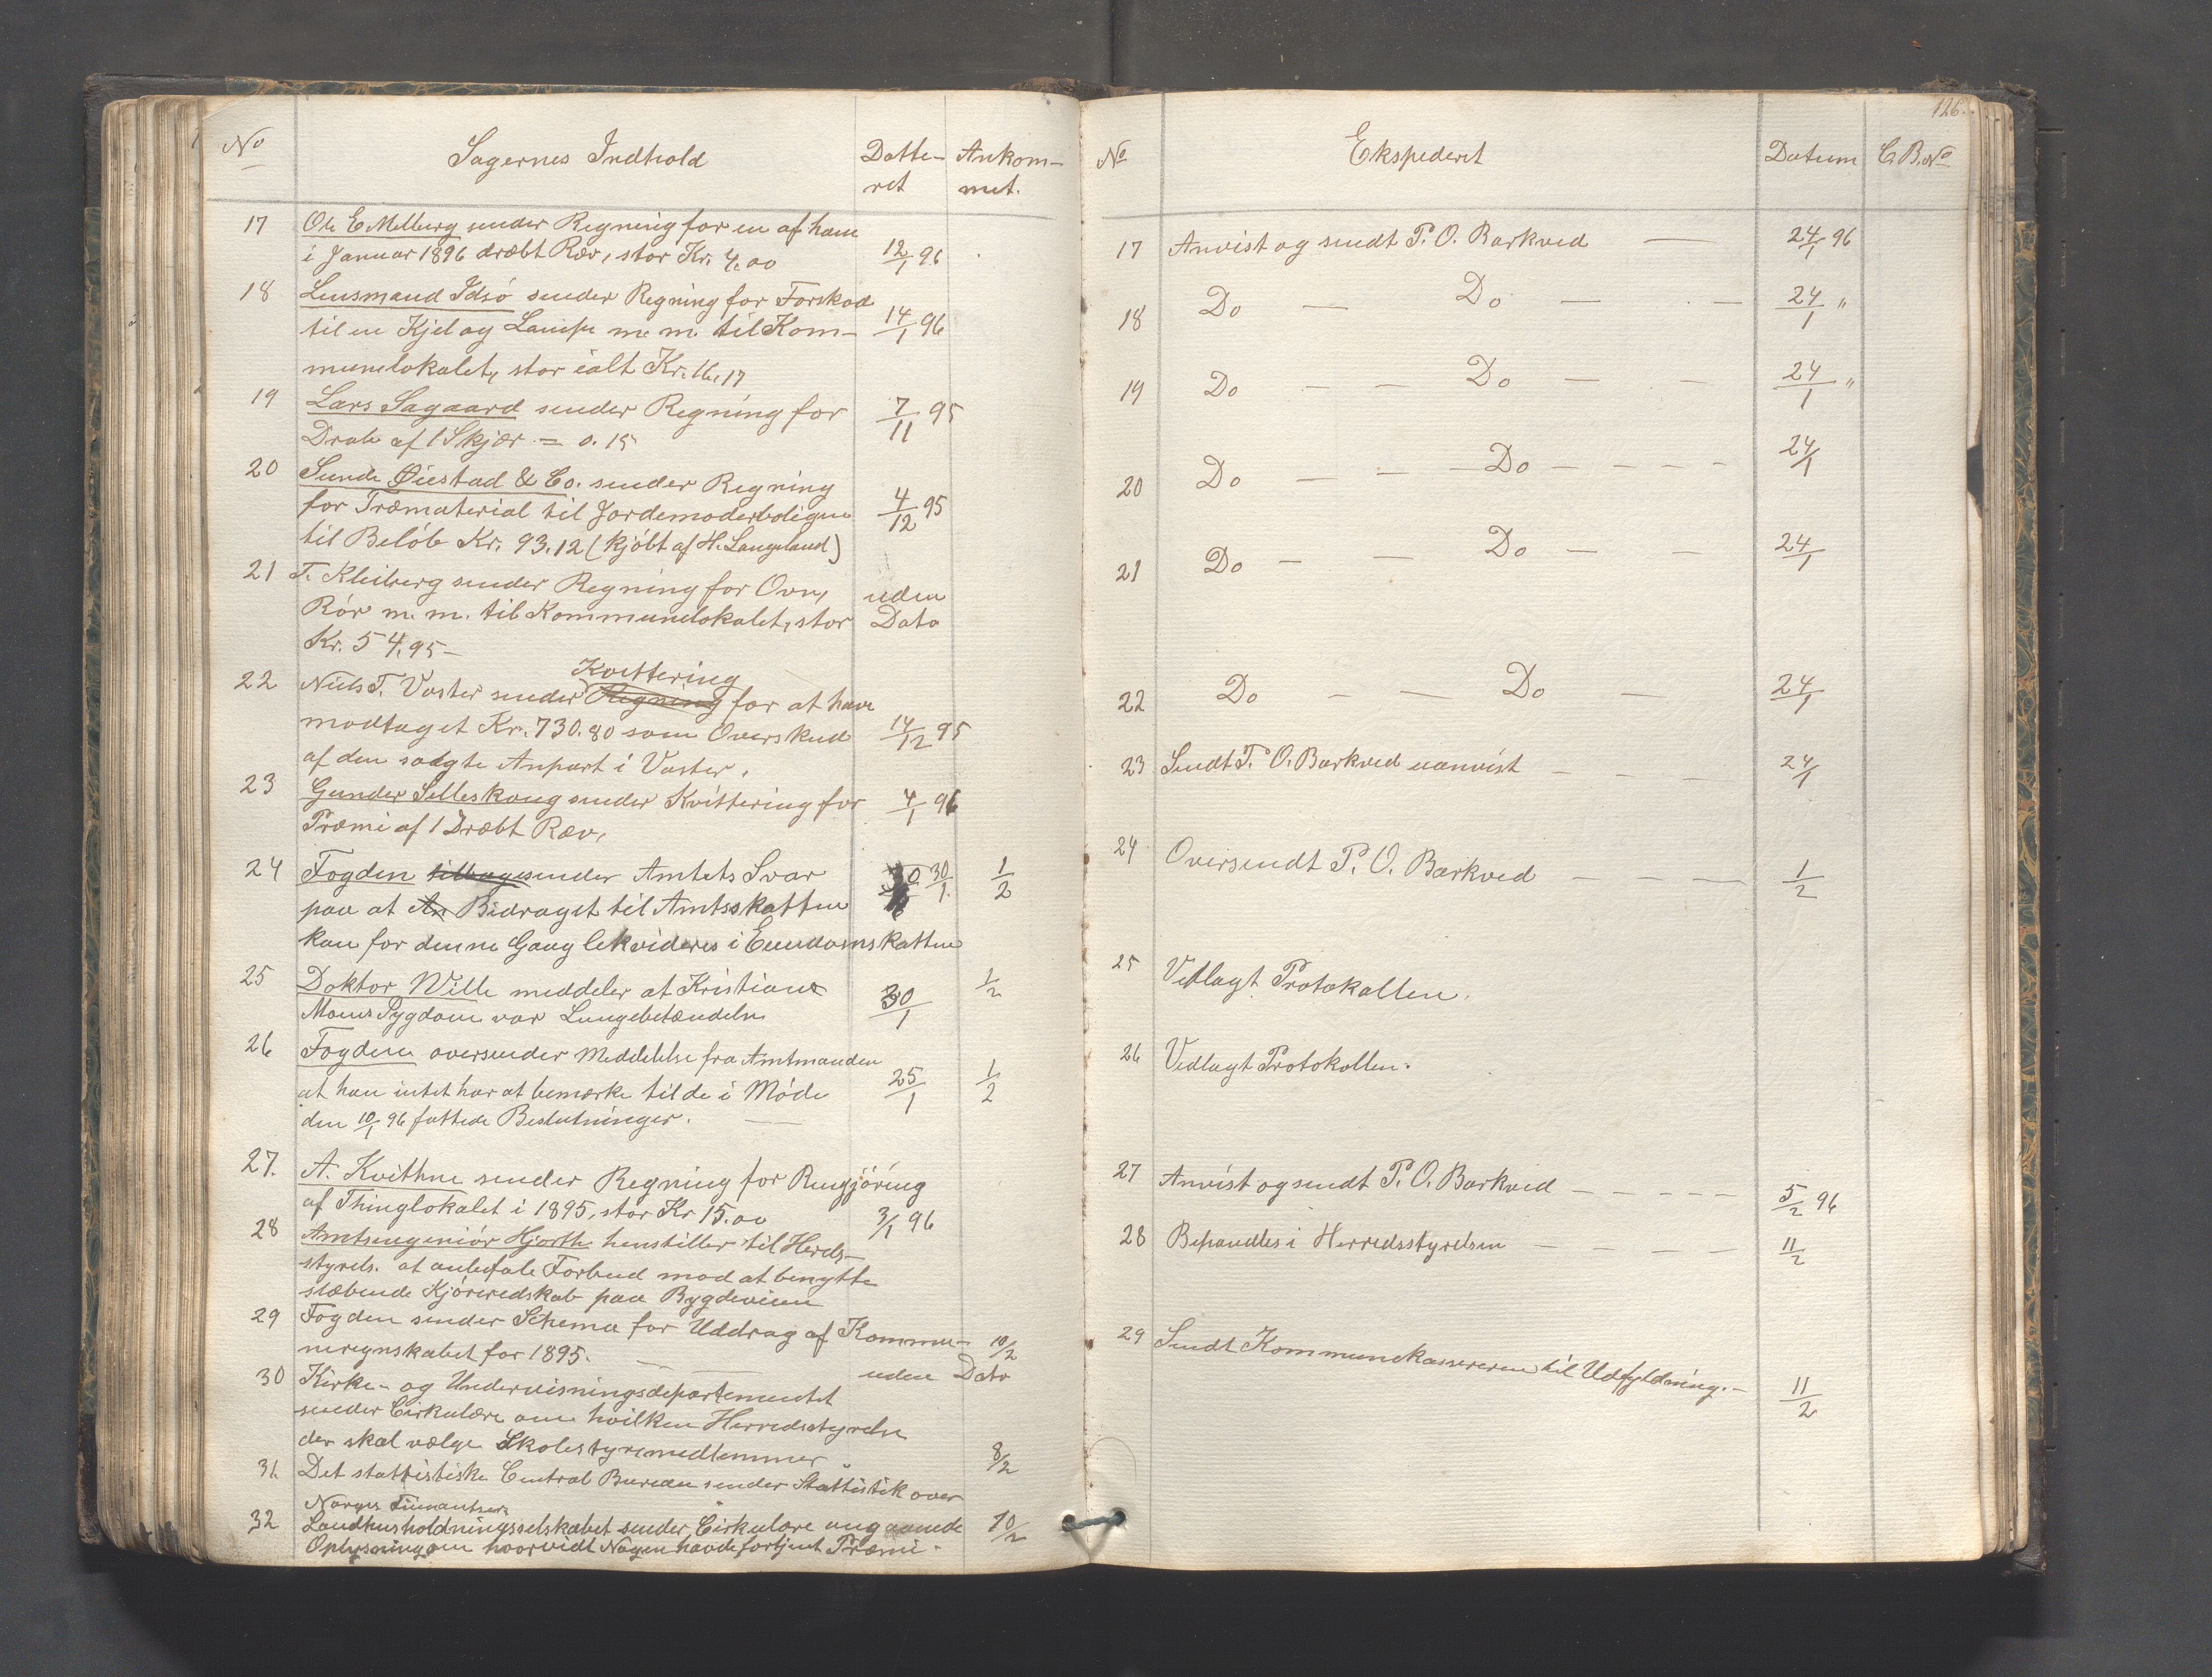 No Sagernes Indhold Datte- Ankom-
ret met.
17 Ole E. Melberg sender Regning for en af ham
i Januar 1896 dræbt Ræv, stor Kr. 4,00 12/1 96
18 Lensmand Idsö sender Regning for Forskud
til en Kjel og Lampe m. m. til Kom- 14/1 96
munelokalet, stor ialt Kr. 16,17
19 Lars Sagaard sender Regning for 7/11 95
Drab af 1 Skjær = 0.15
20 Sunde Øiestad & Co. sender Regning
for Træmaterial til Jordemoderboligen 4/12 95
til Belöb Kr. 93.12 (kjöbt af H. Langeland)
21 T. Kleiberg sender Regning for Ovn, uden
Rör m. m. til Kommunelokalet, stor Dato
Kr. 54,95 –
Kvittering
22 Niels T. Vaster sender Regning for at have
modtaget Kr. 730.80 som Overskud 14/12 95
af den solgte Anpart i Vaster.
23 Gunder Selleskoug sender Kvittering for 4/1 96
Præmi af 1 Dræbt Ræv,
24 Fogden tilbagesender Amtets Svar 30/1 1/2
paa at An Bidraget til Amtsskatten
kan for denne Gang lekvideres i Eiendomsskatten
25 Doktor Wille meddeler at Kristians 30/1 1/2
Moens Sygdom var Lungebetændelse
26 Fogden oversender Meddelelse fra Amtmanden
at han intet har at bemærke til de i Möde 25/1 1/2
den 10/1 96 fattede Beslutninger.
27. A. Kvithne sender Regning for Rengjöring
af Thinglokalet i 1895, stor Kr 15.00 3/1 96
28 Amtsingeniör Hjorth henstiller til Herds-
styrels. at anbefale Forbud mod at benytte
slæbende Kjöreredskab paa Bygdeveien
29 Fogden sender Schema for Uddrag af Kommu- 10/2
neregnskabet for 1895.
30 Kirke- og Undervisningsdepartementet uden Dato
sender Cirkulære om hvilken Herredsstyrelse
der skal vælge Skolestyremedlemmer 8/2
31. Det stattistiske Central Bureau sender Stattistik over
Norges Finantser
32 Landhusholdningsselskabet sender Cirkulære angaaende 10/2
Oplysning om hvorvidt Nogen havde fortjent Præmi.
126.
No Ekspederet Datum C. B. No
17 Anvist og sendt T. O. Barkved — 24/1 96
18 Do — Do — — 24/1 "
19 Do — — Do — — 24/1 "
20 Do — — — Do — — — — 24/1
21 Do — — Do — — 24/1
22 Do — — Do — 24/1
23 Sendt T. O. Barkved uanvist — — — 24/1
24 Oversendt T. O. Barkved — — — 1/2
25 Vedlagt Protokollen.
26 Vedlagt Protokollen.
27 Anvist og sendt T. O. Barkved — — — — — 5/2 96
28 Behandles i Herredsstyrelsen — — — — 11/2
29 Sendt Kommunekassereren til Udfyldning. – 11/2